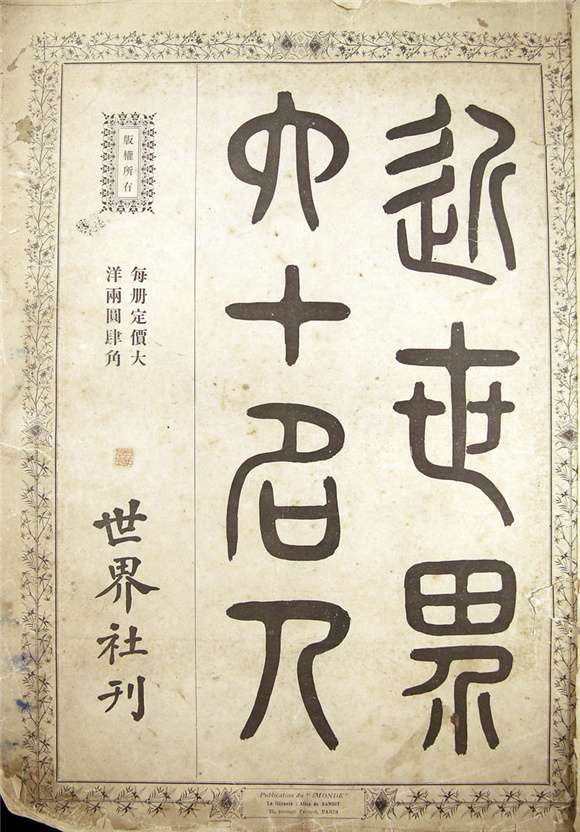 近世界
六十名人
版權所有
每册定價大
洋兩圓肆角
世界社刊
Publication du "MONDE"
La Gérante : Alice de SANDOZ
25, passage Prévost, PARIS